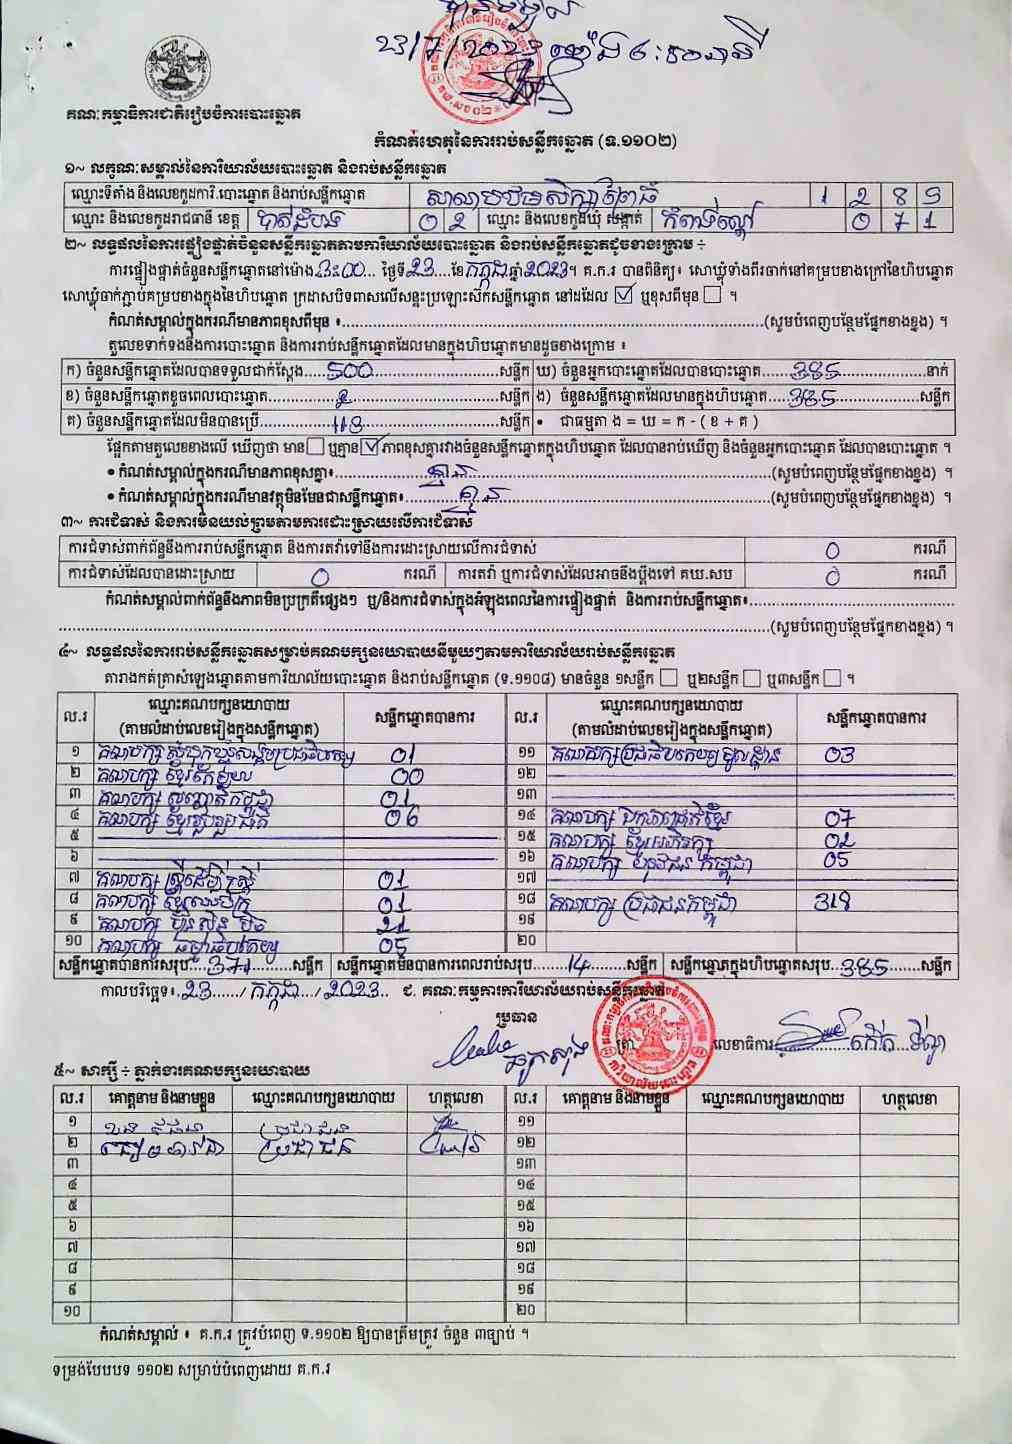 បានទទួល
23/7/2023 ម៉ោង ៤:៤០នាទី
គណៈកម្មាធិការជាតិរៀបចំការបោះឆ្នោត
កំណត់ហេតុនៃការរាប់សន្លឹកឆ្នោត (ទ.១១០២)
១~ លក្ខណៈសម្គាល់នៃការិយាល័យបោះឆ្នោត និងរាប់សន្លឹកឆ្នោត
ឈ្មោះទីតាំង និងលេខកូដការិ.បោះឆ្នោត និងរាប់សន្លឹកឆ្នោត សាលាបឋមសិក្សា 1 2 8 9
ឈ្មោះ និងលេខកូដរាជធានី ខេត្ត បាត់ដំបង 0 2 ឈ្មោះ និងលេខកូដឃុំ សង្កាត់ កំពង់ល្ពៅ 0 7 1
២~ លទ្ធផលនៃការផ្ទៀងផ្ទាត់ចំនួនសន្លឹកឆ្នោតតាមការិយាល័យបោះឆ្នោត និងរាប់សន្លឹកឆ្នោតដូចខាងក្រោម ÷
ការផ្ទៀងផ្ទាត់ចំនួនសន្លឹកឆ្នោតនៅម៉ោង 3:00 ថ្ងៃទី 23 ខែ កក្កដា ឆ្នាំ 2023 ។ គ.ក.រ បានពិនិត្យ៖ សោឃ្លុំទាំងពីរចាក់នៅគម្របខាងក្រៅនៃហិបឆ្នោត
សោឃ្លុំចាក់ភ្ជាប់គម្របខាងក្នុងនៃហិបឆ្នោត ក្រដាសបិទពាសលើសន្ទះប្រឡោះស៊កសន្លឹកឆ្នោត នៅដដែល ☑ ឬខុសពីមុន ☐ ។
កំណត់សម្គាល់ក្នុងករណីមានភាពខុសពីមុន ៖ (សូមបំពេញបន្ថែមផ្នែកខាងខ្នង) ។
តួលេខទាក់ទងនឹងការបោះឆ្នោត និងការរាប់សន្លឹកឆ្នោតដែលមានក្នុងហិបឆ្នោតមានដូចខាងក្រោម ៖
ក) ចំនួនសន្លឹកឆ្នោតដែលបានទទួលជាក់ស្តែង 500 សន្លឹក ឃ) ចំនួនអ្នកបោះឆ្នោតដែលបានបោះឆ្នោត 385 នាក់
ខ) ចំនួនសន្លឹកឆ្នោតខូចពេលបោះឆ្នោត 2 សន្លឹក ង) ចំនួនសន្លឹកឆ្នោតដែលមានក្នុងហិបឆ្នោត 385 សន្លឹក
គ) ចំនួនសន្លឹកឆ្នោតដែលមិនបានប្រើ 113 សន្លឹក • ជាធម្មតា ង = ឃ = ក - ( ខ + គ )
ផ្អែកតាមតួលេខខាងលើ ឃើញថា មាន ☐ ឬគ្មាន ☑ ភាពខុសគ្នារវាងចំនួនសន្លឹកឆ្នោតក្នុងហិបឆ្នោត ដែលបានរាប់ឃើញ និងចំនួនអ្នកបោះឆ្នោត ដែលបានបោះឆ្នោត ។
• កំណត់សម្គាល់ក្នុងករណីមានភាពខុសគ្នា៖ គ្មាន (សូមបំពេញបន្ថែមផ្នែកខាងខ្នង) ។
• កំណត់សម្គាល់ក្នុងករណីមានវត្ថុមិនមែនជាសន្លឹកឆ្នោត៖ គ្មាន (សូមបំពេញបន្ថែមផ្នែកខាងខ្នង) ។
៣~ ការជំទាស់ និងការមិនយល់ព្រមតាមការដោះស្រាយលើការជំទាស់
ការជំទាស់ពាក់ព័ន្ធនឹងការរាប់សន្លឹកឆ្នោត និងការតវ៉ាទៅនឹងការដោះស្រាយលើការជំទាស់ 0 ករណី
ការជំទាស់ដែលបានដោះស្រាយ 0 ករណី ការតវ៉ា ឬការជំទាស់ដែលអាចនឹងប្តឹងទៅ គឃ.សប 0 ករណី
កំណត់សម្គាល់ពាក់ព័ន្ធនឹងភាពមិនប្រក្រតីផ្សេងៗ ឬ/និងការជំទាស់ក្នុងអំឡុងពេលនៃការផ្ទៀងផ្ទាត់ និងការរាប់សន្លឹកឆ្នោត៖
(សូមបំពេញបន្ថែមផ្នែកខាងខ្នង) ។
៤~ លទ្ធផលនៃការរាប់សន្លឹកឆ្នោតសម្រាប់គណបក្សនយោបាយនីមួយៗតាមការិយាល័យរាប់សន្លឹកឆ្នោត
តារាងកត់ត្រាសំឡេងឆ្នោតតាមការិយាល័យបោះឆ្នោត និងរាប់សន្លឹកឆ្នោត (ទ.១១០៨) មានចំនួន ១សន្លឹក ☐ ឬ២សន្លឹក ☐ ឬ៣សន្លឹក ☐ ។
ល.រ ឈ្មោះគណបក្សនយោបាយ (តាមលំដាប់លេខរៀងក្នុងសន្លឹកឆ្នោត) សន្លឹកឆ្នោតបានការ ល.រ ឈ្មោះគណបក្សនយោបាយ (តាមលំដាប់លេខរៀងក្នុងសន្លឹកឆ្នោត) សន្លឹកឆ្នោតបានការ
១ គណបក្ស សំបុកឃ្មុំសង្គមប្រជាធិបតេយ្យ 01 ១១ គណបក្សប្រជាធិបតេយ្យមូលដ្ឋាន 03
២ គណបក្ស ខ្មែរតែមួយ 00 ១២
៣ គណបក្ស សញ្ជាតិកម្ពុជា 01 ១៣
៤ គណបក្ស ខ្មែររួបរួមជាតិ 06 ១៤ គណបក្ស ឯកភាពជាតិខ្មែរ 07
៥ ១៥ គណបក្ស ខ្មែរអភិរក្ស 02
៦ ១៦ គណបក្ស យុវជនកម្ពុជា 05
៧ គណបក្ស ស្ត្រីដើម្បីស្ត្រី 01 ១៧
៨ គណបក្ស ខ្មែរឈប់ក្រ 01 ១៨ គណបក្ស ប្រជាជនកម្ពុជា 318
៩ គណបក្ស ហ្វ៊ុនស៊ិនប៉ិច 21 ១៩
១០ គណបក្ស ធម្មាធិបតេយ្យ 05 ២០
សន្លឹកឆ្នោតបានការសរុប 371 សន្លឹក សន្លឹកឆ្នោតមិនបានការពេលរាប់សរុប 14 សន្លឹក សន្លឹកឆ្នោតក្នុងហិបឆ្នោតសរុប 385 សន្លឹក
កាលបរិច្ឆេទ៖ 23 / កក្កដា / 2023 ជ. គណៈកម្មការការិយាល័យរាប់សន្លឹកឆ្នោត
ប្រធាន
ត្រា លេខាធិការ
៥~ សាក្សី ÷ ភ្នាក់ងារគណបក្សនយោបាយ
ល.រ គោត្តនាម និងនាមខ្លួន ឈ្មោះគណបក្សនយោបាយ ហត្ថលេខា ល.រ គោត្តនាម និងនាមខ្លួន ឈ្មោះគណបក្សនយោបាយ ហត្ថលេខា
១ ប្រជាជន ១១
២ ប្រជាជន ១២
៣ ១៣
៤ ១៤
៥ ១៥
៦ ១៦
៧ ១៧
៨ ១៨
៩ ១៩
១០ ២០
កំណត់សម្គាល់ ៖ គ.ក.រ ត្រូវបំពេញ ទ.១១០២ ឱ្យបានត្រឹមត្រូវ ចំនួន ៣ច្បាប់ ។
ទម្រង់បែបបទ ១១០២ សម្រាប់បំពេញដោយ គ.ក.រ